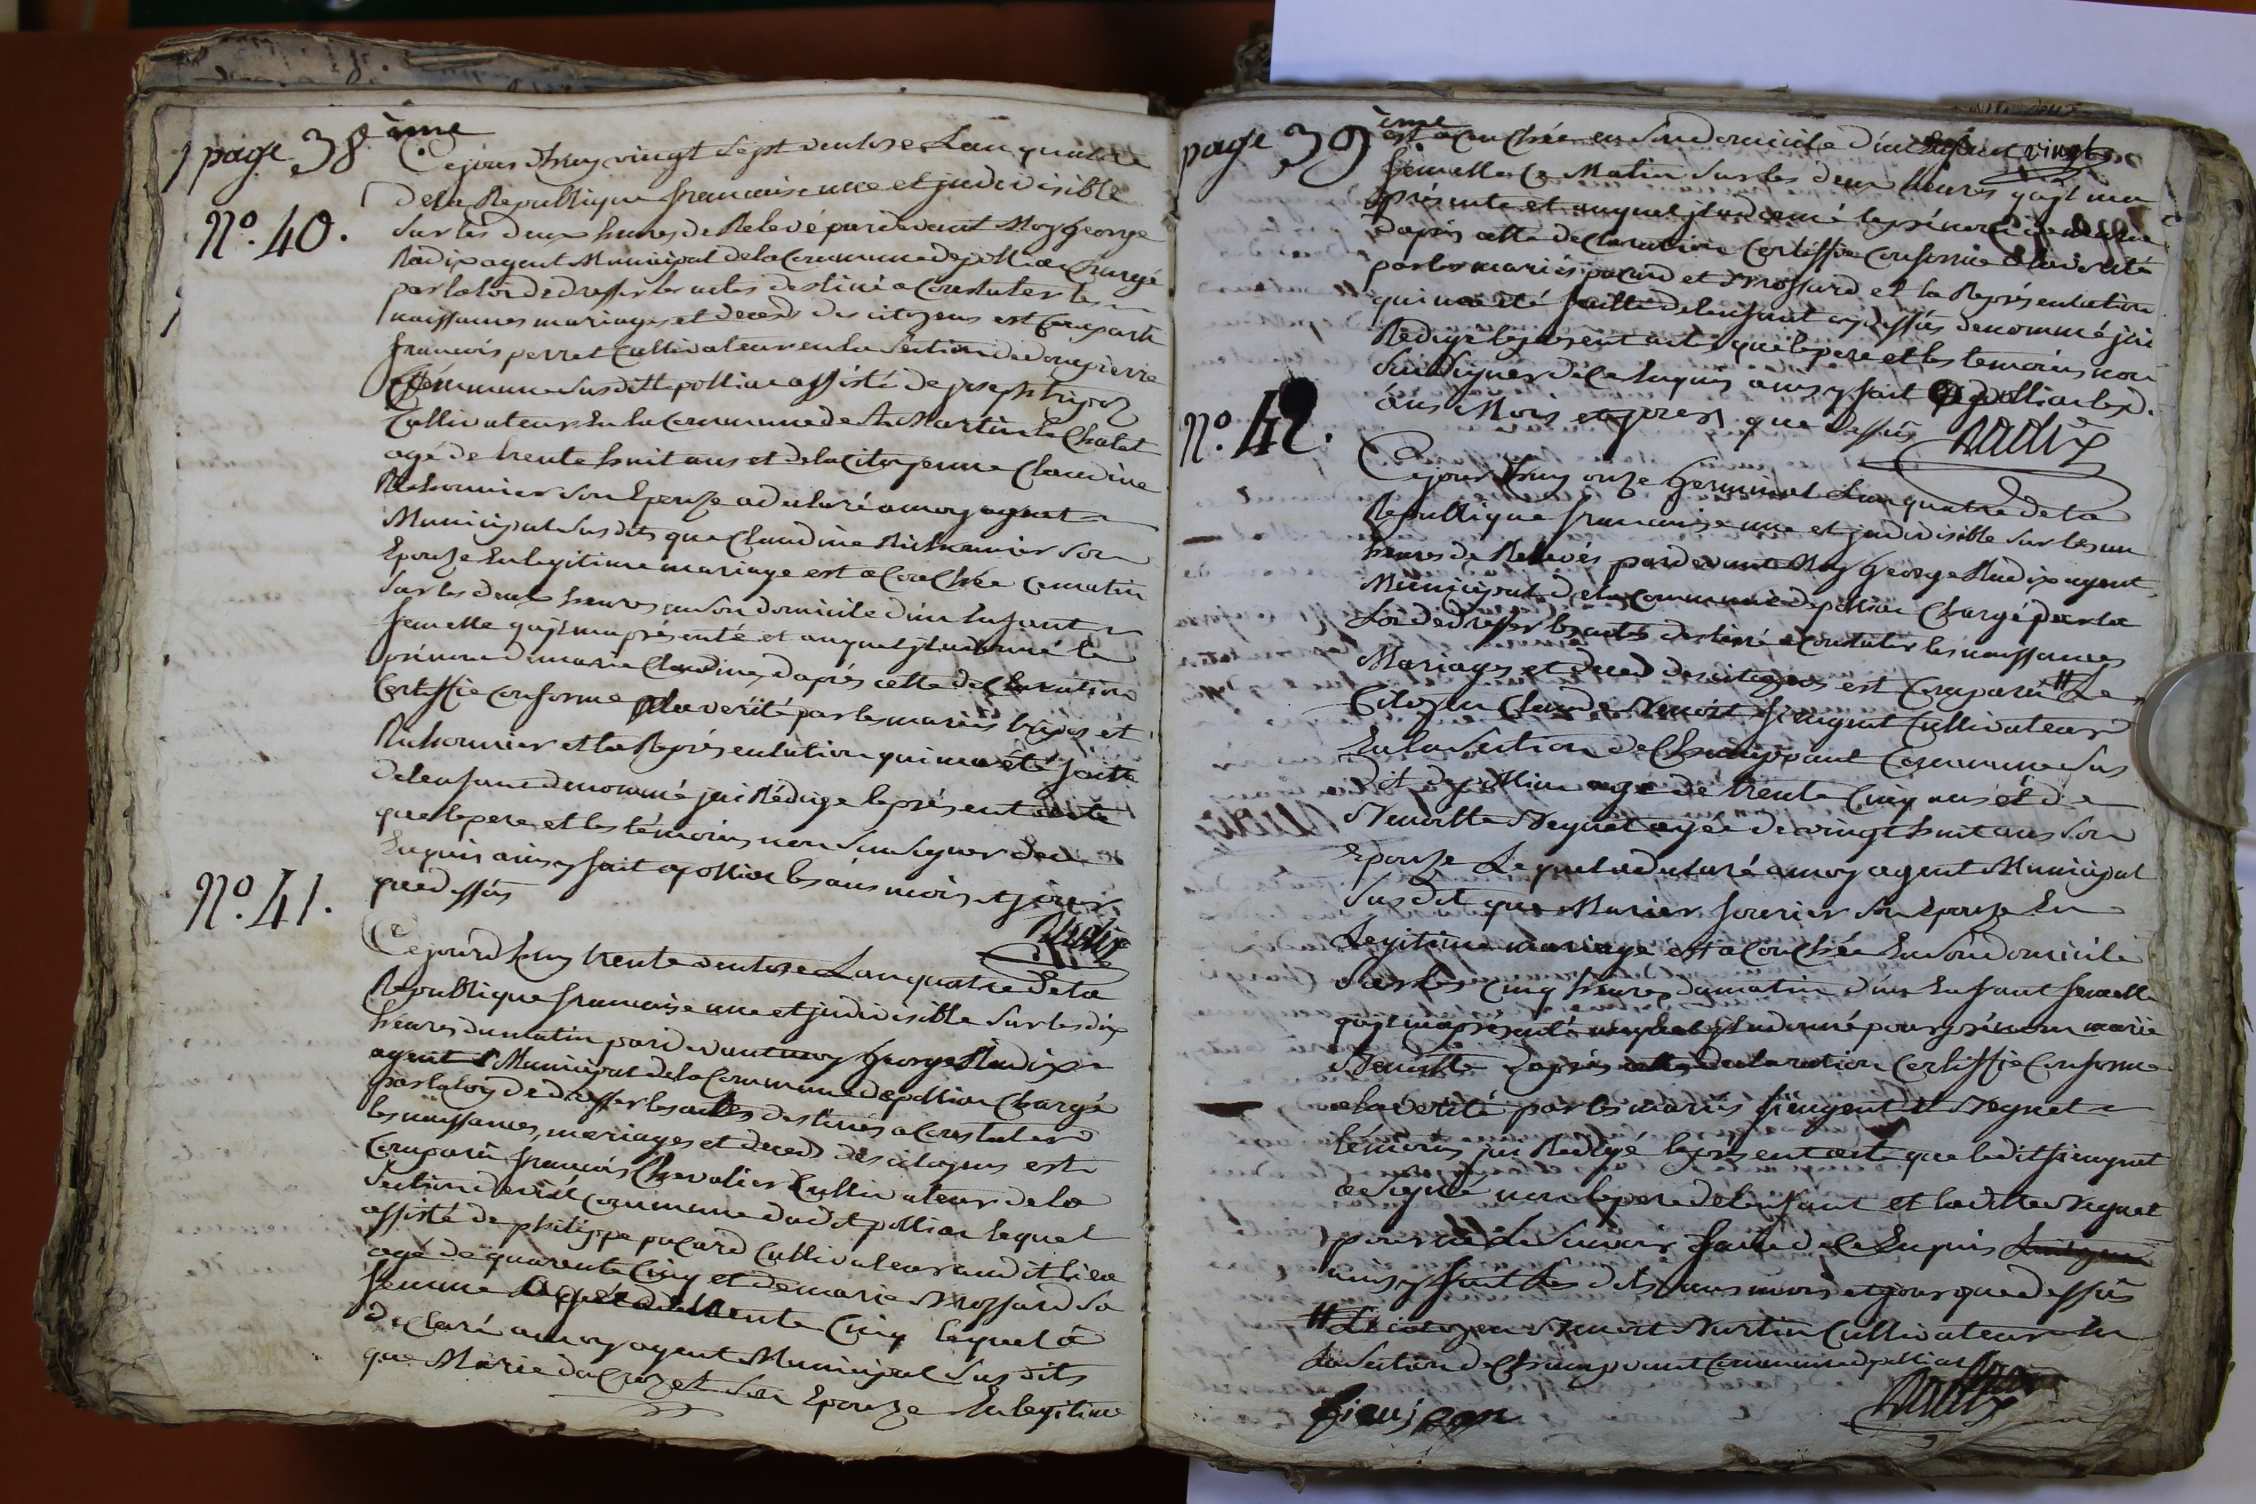 page 38 ème
Nº. 40.
Ce jourdhuy vingt Sept ventose Lan quatre
dela Republique francaise une et jndivisible
Sur les deux heures de Relevé pardevant Moy George
Radix agent Municipal dela Commune de polliat Chargé
par la loi de dresser les actes destiné a Constater les
naissances mariages et deceds des citoyens est Comparû
francois perret Cultivateur en la Section de dompierre
Commune Susditte polliat assisté de joseph tripoz
Cultivateur En la Commune de St Martin le Chatel
agé de trente huit ans et de la Citoyenne Claudine
Richonnier Son Epouze a declaré a moy agent
Municipal Susdits que Claudine Richonnier Son
Epouze En legitime mariage est acouchée ce matin
Sur les deux heures en Son domicile d'un Enfant
femelle qu'jl ma présenté et auquel jl a donné le
prénom de marie Claudine, d'aprés cette declaration
Certiffie Conforme a la verité par les mariés tripoz et
Richonnier et la Représentation qui ma été faitte
de lenfant denommé jai Rédige le présent acte
que le pere et les témoins non Sçu Signer de ce
Enquis ainsy fait a polliat les ans mois et jours
que dessus
Radix
Nº. 41.
Ce jourdhuy trente ventose Lan quatre de la
Republique francaise une et jndivisible Sur les dix
heures du matin pardevant moy George Radix
agent Municipal de la Commune de polliat Chargé
par la loy de dresser les actes destinés a Constater
les naissances, mariages et deceds des citoyens est
Comparû francois Chevalier Cultivateur de la
Section de vial Commune dudit polliat lequel
assisté de philippe pacard Cultivateur audit lieu
agé de quarente Cinq et de marie Brossard Sa
femme agée de trente Cinq lequel a
declaré a moy agent Municipal Susdits
que Marie du Crozet Son Epouze En legitime
page 39 ème
est acouchée en Son domicile d'un Enfant
femelle Ce Matin Sur les deux heures qu'jl ma
présenté et auquel jl a donné le prénom de
daprés cette declaration Certiffie Conforme a la verité
par les mariés pacard et Brossard et la Représentation
qui ma été faitte de lenfant cy dessus denommé jai
Rédige le présent acte que le pere et les temoins non
Sçu Signer de ce Enquis ainsy fait a polliat les d.
ans Mois et jours que dessus Radix
Nº. 42.
Ce jourdhuy onze Germinal Lan quatre de la
Republique francaise une et jndivisible Sur les un
heures de Relevés pardevant Moy George Radix agent
Municipal de la Commune de polliat Chargé par la
Loi de dresser les actes destiné a Constater les naissances
Mariages et deced des citoyens est Comparû # Le
Citoyen Claude Benoit fiengent Cultivateur
En la Section de Champvent Commune Sus
dit de polliat agé de trente Cinq ans et de
Benoitte Neyret agée de vingt huit ans Son
Epouze Lequel a declaré a moy agent Municipal
Susdit que Marier fourier Son Epouze En
Legitime mariage est acouchée En Son domicile
Sur les Cinq heures du matin d'un Enfant femelle
qu'jl ma présenté auquel jl a donné pour prénom marie
Benoitte daprés cette declaration Certiffie Conforme
a la verité par les mariés fiengent et Neyret
témoins jai Redigé le présent acte que ledit fiengent
a Signé non le pere de lenfant et laditte Neyret
pour ne le Savoir faire de ce Enquis
ainsy fait Les dits ans mois et jour que dessus
# Le citoyen Benoit Burtin Cultivateur En
la Section de Champvent Commune de polliat
Radix